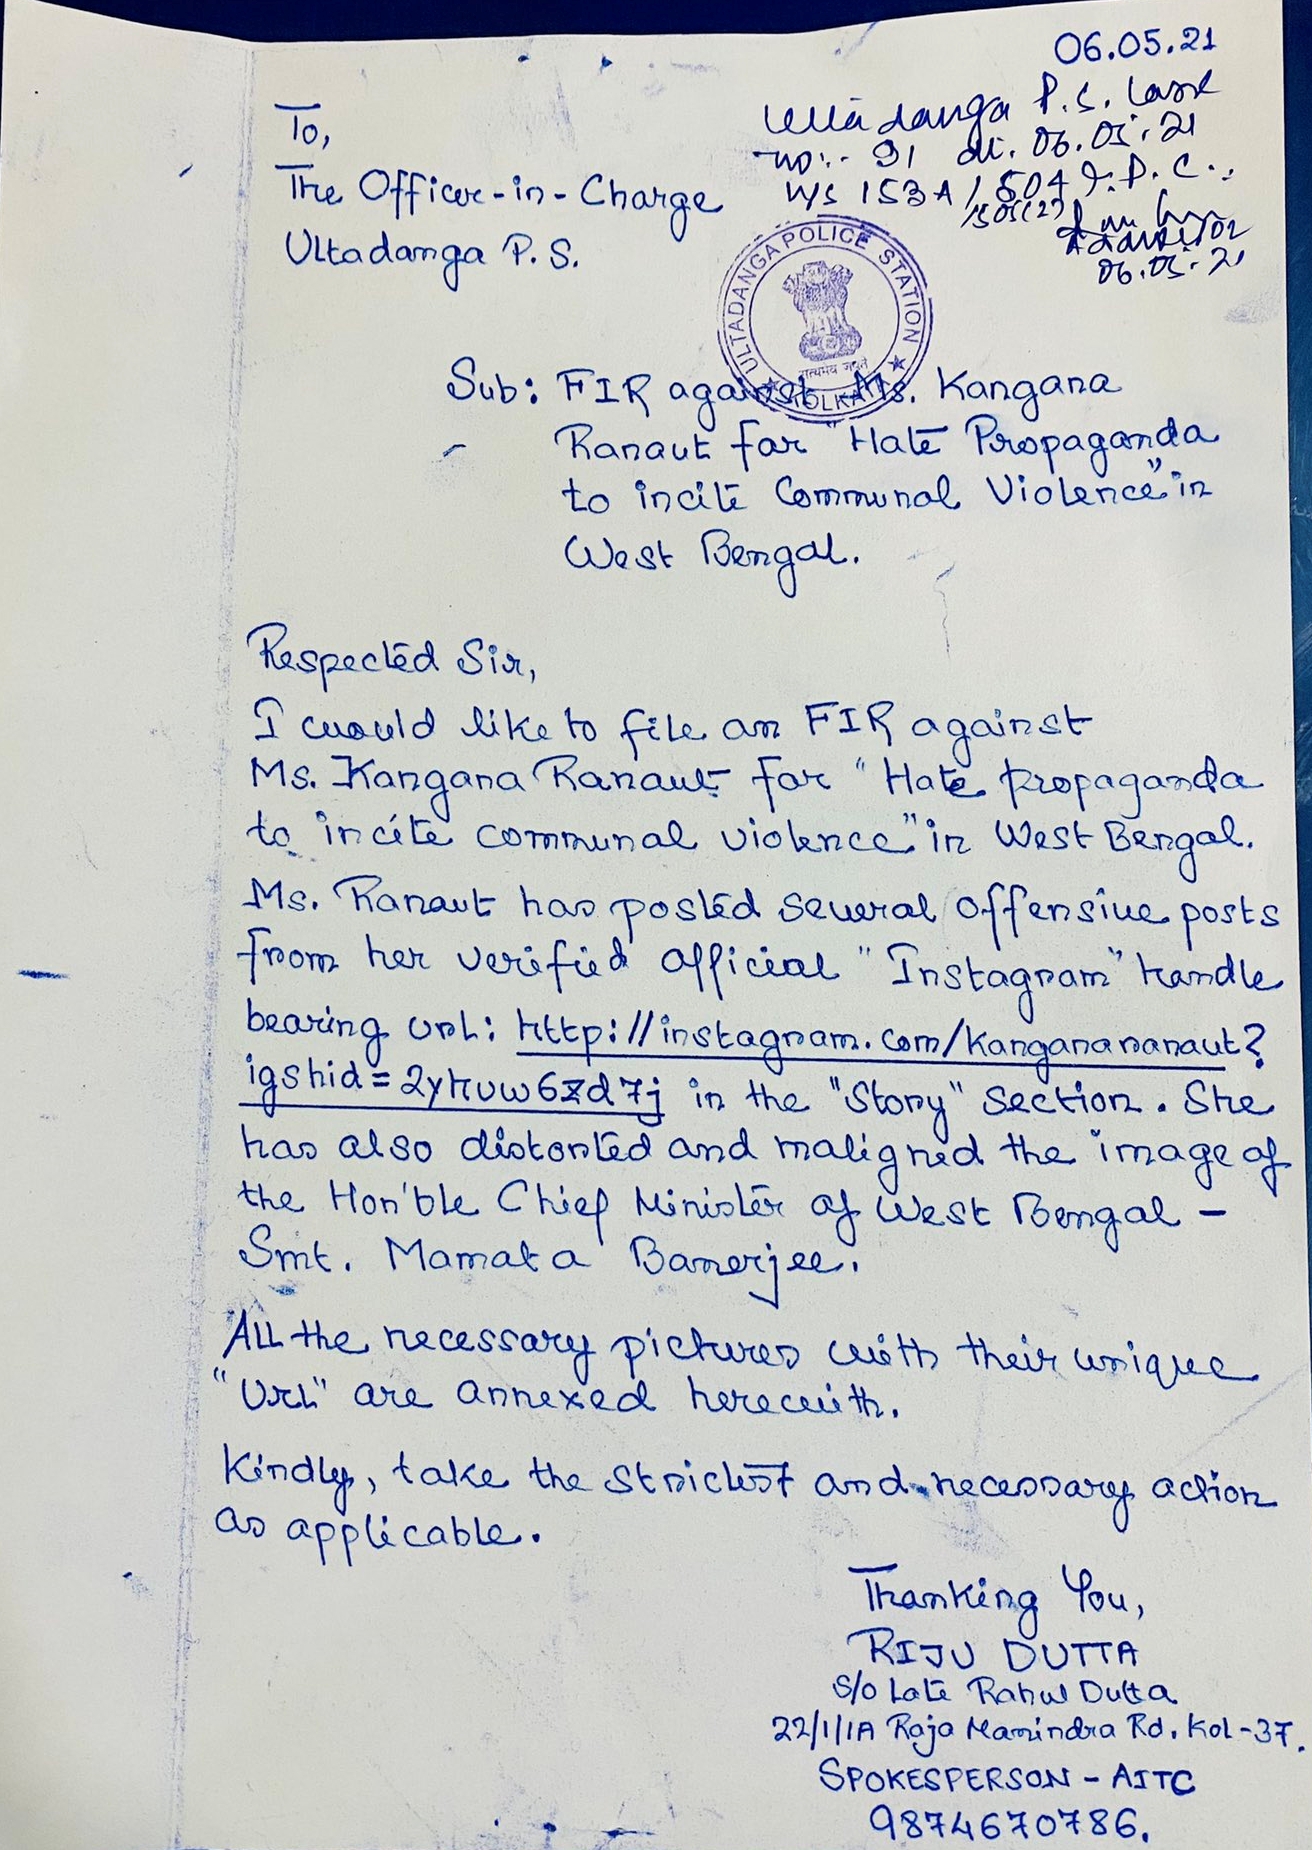 06.05.21
Ultadanga P.S. Case
no:- 91 dt. 06.05.21
U/S 153A / 504 I.P.C.
505(2)
06.05.21
To,
The Officer-in-Charge
Ultadanga P.S.
ULTADANGA POLICE STATION
सत्यमेव जयते
KOLKATA
Sub: FIR against Ms. Kangana
Ranaut for "Hate Propaganda
to incite Communal Violence" in
West Bengal.
Respected Sir,
I would like to file an FIR against
Ms. Kangana Ranaut for "Hate propaganda
to incite communal violence" in West Bengal.
Ms. Ranaut has posted several offensive posts
from her verified official "Instagram" handle
bearing url: http://instagram.com/kanganaranaut?
igshid=2yhuw6zd7j in the "Story" section. She
has also distorted and maligned the image of
the Hon'ble Chief Minister of West Bengal -
Smt. Mamata Banerjee.
All the necessary pictures with their unique
"Url" are annexed herewith.
Kindly, take the strictest and necessary action
as applicable.
Thanking You,
RIJU DUTTA
S/o Late Rahul Dutta
22/1/1A Raja Manindra Rd. Kol-37.
SPOKESPERSON - AITC
9874670786.